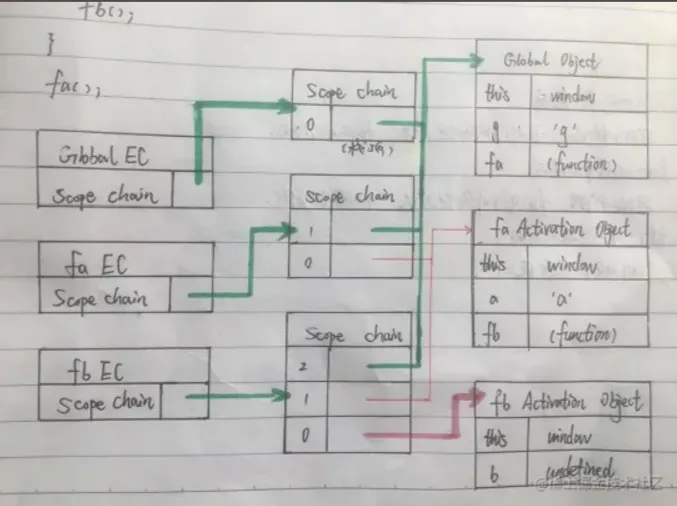 fb();
}
fa();
Global EC
Scope chain
fa EC
Scope chain
fb EC
Scope chain
Scope chain
0
Scope chain
1
0
Scope chain
2
1
0
Global Object
this window
g 'g'
fa (function)
fa Activation Object
this window
a 'a'
fb (function)
fb Activation Object
this window
b undefined